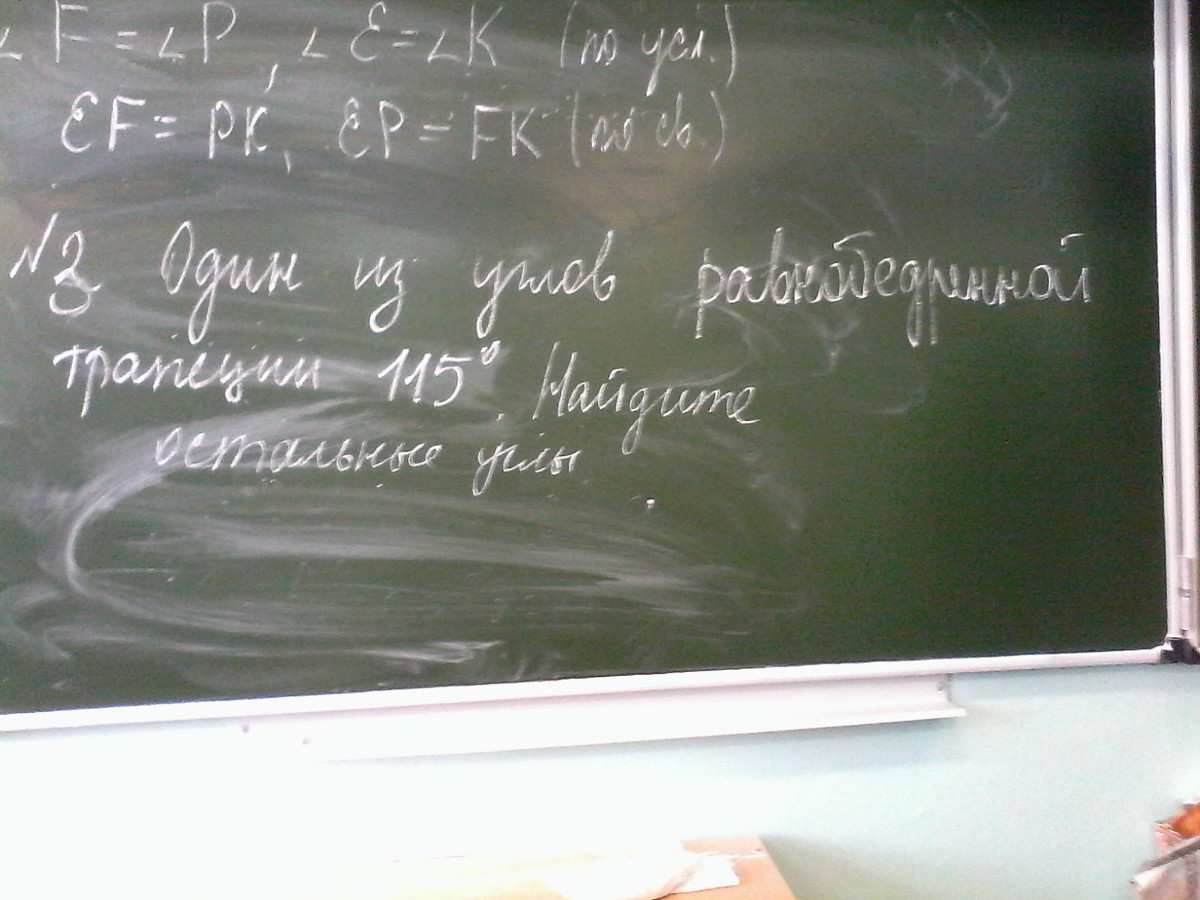 ∠F = ∠P, ∠E = ∠K (по усл.)
EF = PK, EP = FK (по св.)
№3 Один из углов равнобедренной
трапеции 115°. Найдите
остальные углы